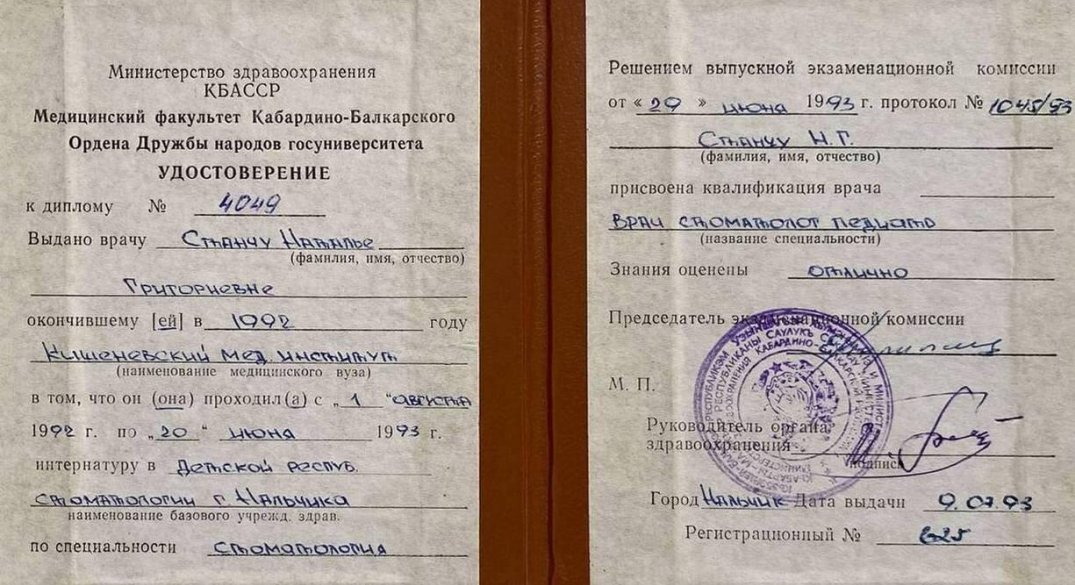 Министерство здравоохранения
КБАССР
Медицинский факультет Кабардино-Балкарского
Ордена Дружбы народов госуниверситета
УДОСТОВЕРЕНИЕ
к диплому № 4049
Выдано врачу Станчу Наталье
(фамилия, имя, отчество)
Григориевне
окончившему [ей] в 1992 году
Кишеневский мед. институт
(наименование медицинского вуза)
в том, что он (она) проходил(а) с „1 " августа
1992 г. по „20" июня 1993 г.
интернатуру в Детской респуб.
стоматологии г. Нальчика
наименование базового учрежд. здрав.
по специальности стоматология
Решением выпускной экзаменационной комиссии
от « 29 » июна 1993 г. протокол № 1045/93
Станчу Н.Г.
(фамилия, имя, отчество)
присвоена квалификация врача
врач стоматолог педиатр
(название специальности)
Знания оценены отлично
Председатель экзаменационной комиссии
М. П.
Руководитель органа
здравоохранения
подпись
Город Нальчик Дата выдачи 9.07.93
Регистрационный № 625